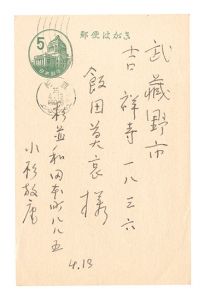 郵便はがき
5
武蔵野市
吉祥寺一八三六
飯田莫哀様
杉並和田本町八八五
小杉放庵
4.13